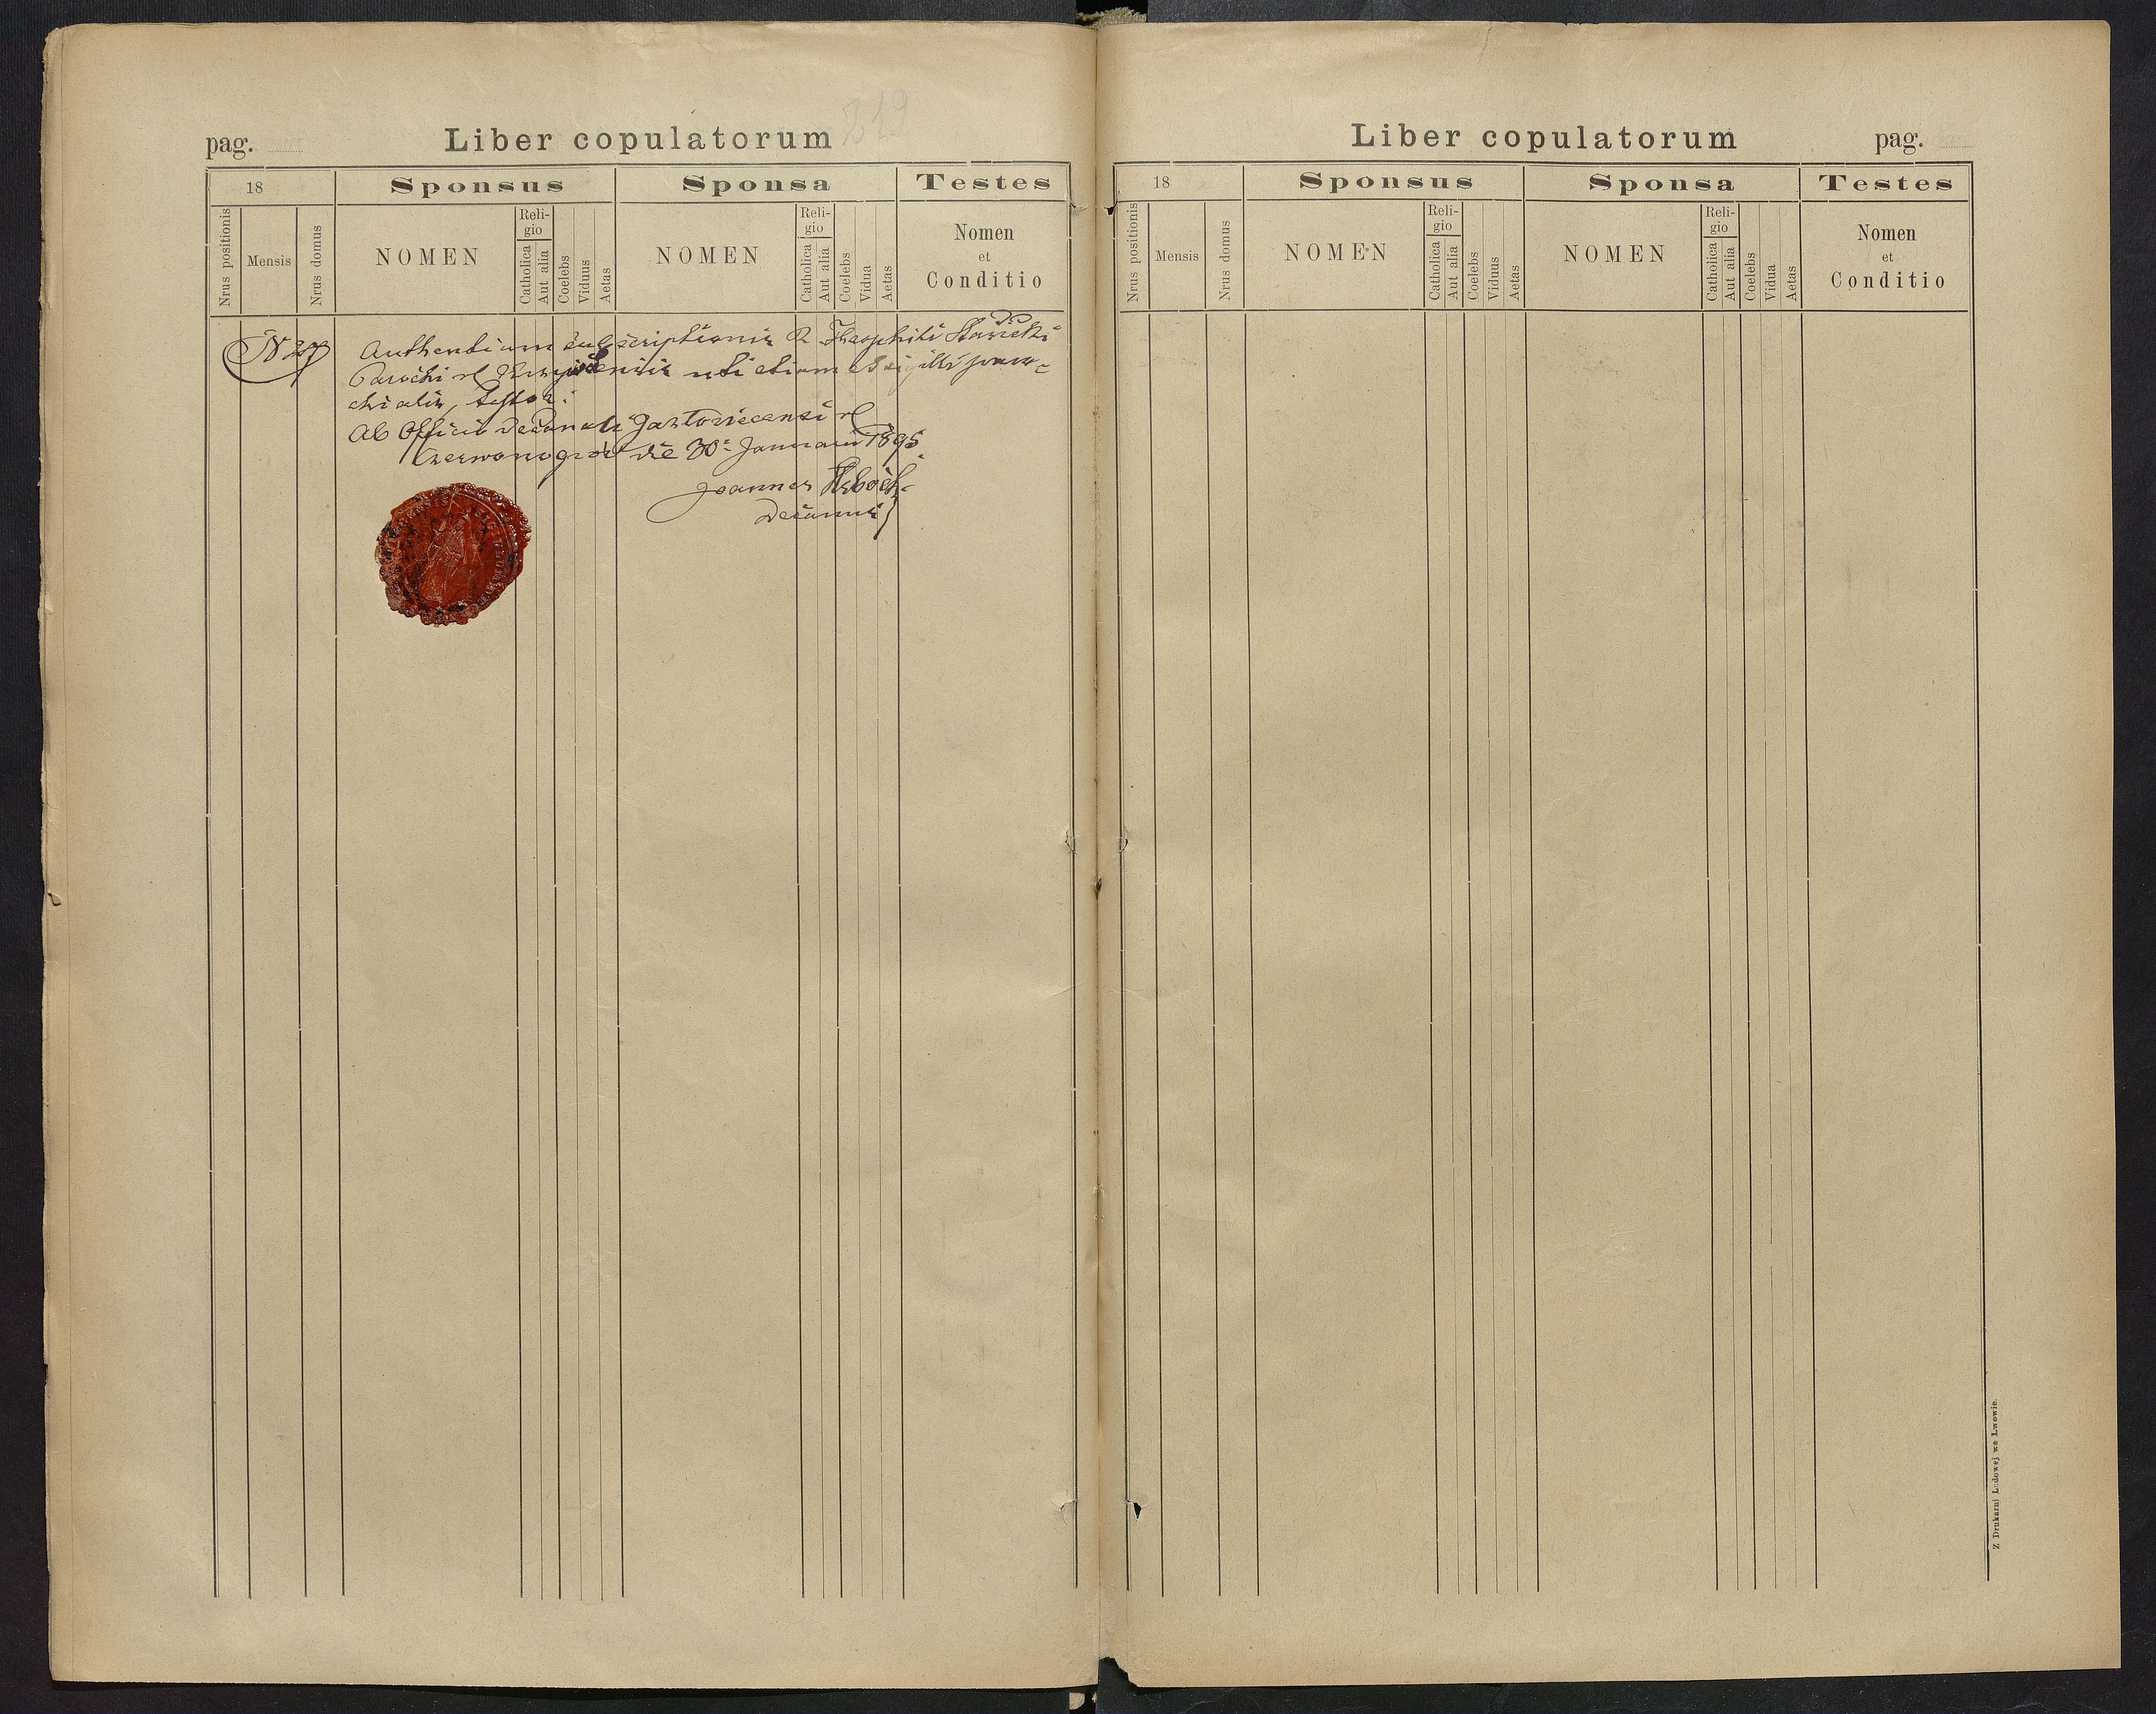 219
pag. Liber copulatorum
18 Sponsus Sponsa Testes
Nrus positionis Mensis Nrus domus NOMEN Religio Catholica Aut alia Coelebs Viduus Aetas NOMEN Religio Catholica Aut alia Coelebs Vidua Aetas Nomen et Conditio
N 37
Authentiam subscriptionis R. Theophili
Parochi rl uti etiam sigilli paro-
chialis, testor.
Ab Officio Decanali Jazlovicensi rl
Czerwonogród die 30. Januarii 1895.
Joannes
Decanus
Liber copulatorum pag.
18 Sponsus Sponsa Testes
Nrus positionis Mensis Nrus domus NOMEN Religio Catholica Aut alia Coelebs Viduus Aetas NOMEN Religio Catholica Aut alia Coelebs Vidua Aetas Nomen et Conditio
Z Drukarni Ludowej we Lwowie.